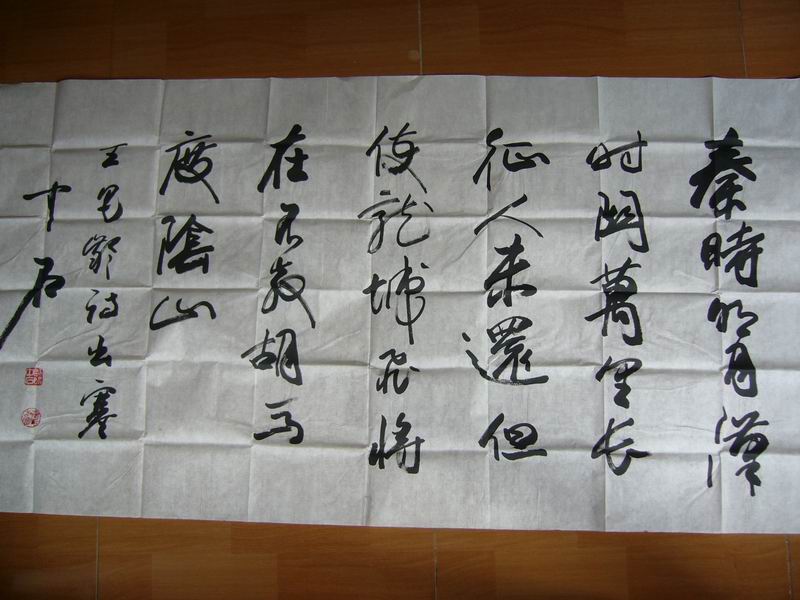 秦時明月漢
时関萬里长
征人未還但
使龍城飛将
在不教胡马
度陰山
王昌齡诗出塞
十石